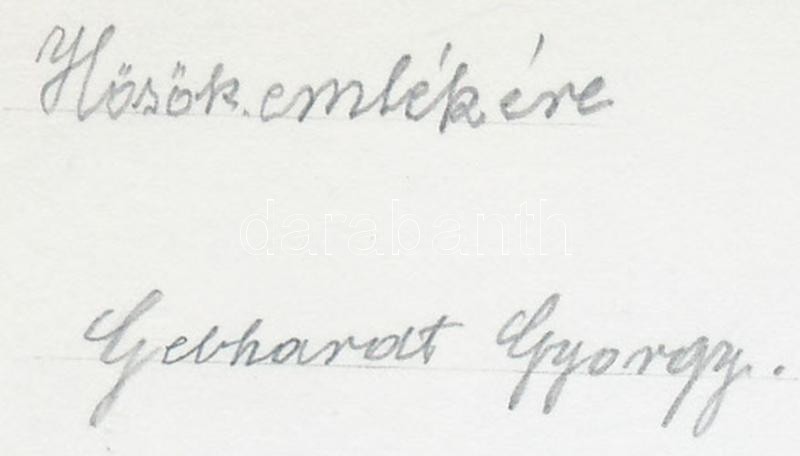 Hösök emlékére
darabanth
Gebhardt Gyorgy.